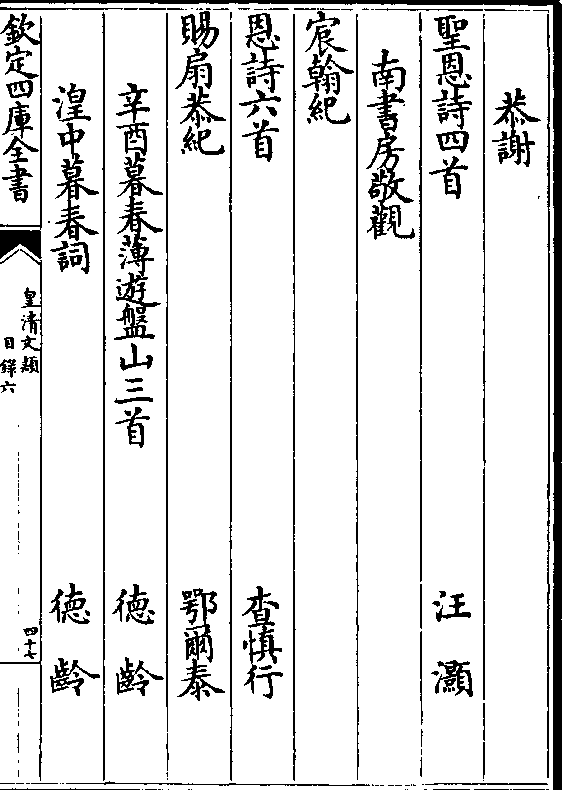 恭謝
聖恩詩四首 汪灝
南書房敬觀
宸翰紀
恩詩六首 查慎行
賜扇恭紀 鄂爾泰
辛酉暮春薄遊盤山三首 德齡
湟中暮春詞 德齡
欽定四庫全書
皇清文類
目錄六
四十七